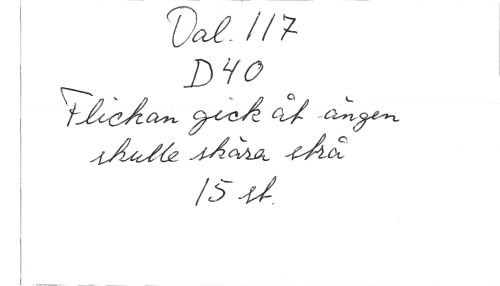 Dal. 117
D40
Flickan gick åt ängen
skulle skära strå
15 st.